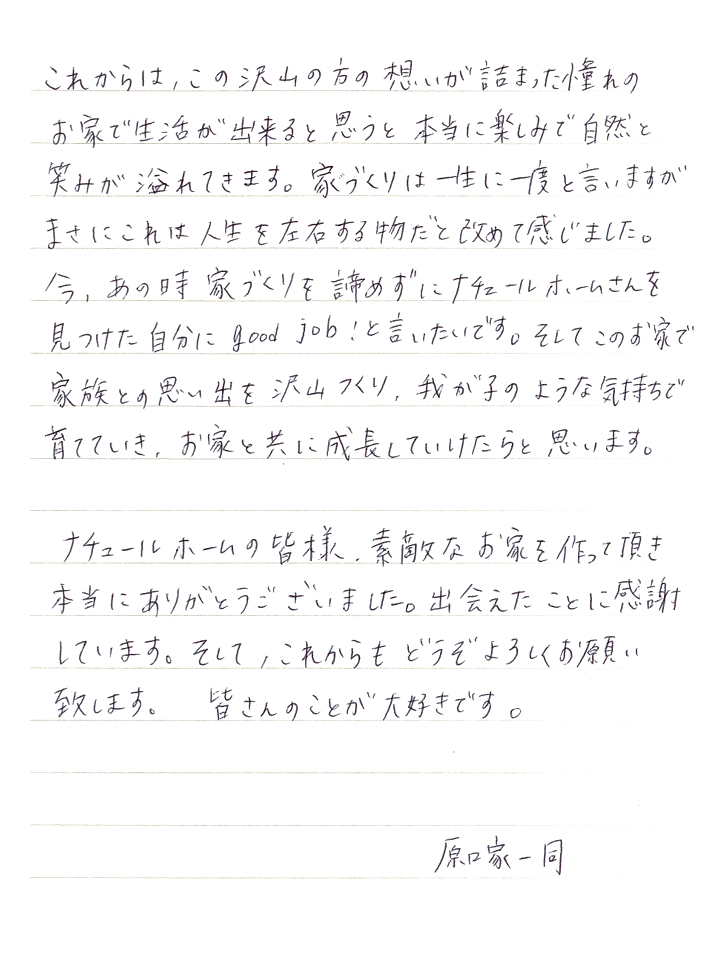 これからは、この沢山の方の想いが詰まった憧れの
お家で生活が出来ると思うと本当に楽しみで自然と
笑みが溢れてきます。家づくりは一生に一度と言いますが
まさにこれは人生を左右する物だと改めて感じました。
今、あの時家づくりを諦めずにナチュールホームさんを
見つけた自分にgood job!と言いたいです。そしてこのお家で
家族との思い出を沢山つくり、我が子のような気持ちで
育てていき、お家と共に成長していけたらと思います。
ナチュールホームの皆様、素敵なお家を作って頂き
本当にありがとうございました。出会えたことに感謝
しています。そして、これからもどうぞよろしくお願い
致します。 皆さんのことが大好きです。
原口家一同